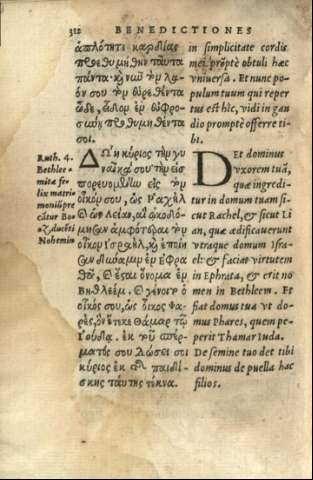 312 BENEDICTIONES
ἁπλότητι καρδίας
προεθυμήθην ταῦτα
πάντα. καὶ νῦν τὸν λα-
όν σου τὸν εὑρεθέντα
ὧδε, εἶδον ἐν εὐφρο-
σύνῃ προθυμηθέντα
σοι.
in simplicitate cordis
mei, prõptè obtuli hæc
vniuersa. Et nunc po-
pulum tuum qui reper
tus est hîc, vidi in gau
dio promptè offerre ti-
bi.
Ruth. 4.
Bethlee-
mitæ fe-
lix matri
moniũ pre
cãtur Bo-
az, ducẽti
Nohemin
ΔΩη κύριος τὴν γυ-
ναῖκά σου τὴν εἰσ
πορευομένην εἰς τὸν
οἶκόν σου, ὡς Ραχὴλ
καὶ ὡς Λείαν, αἳ ᾠκοδό-
μησαν ἀμφότεραι τὸν
οἶκον Ισραήλ, καὶ ἐποίη-
σαν δύναμιν ἐν Εφρα
θᾷ, καὶ ἔσαι ὄνομα ἐν
Βηθλεέμ. καὶ γένοιτο ὁ
οἶκός σου, ὡς οἶκος Φα-
ρὲς, ὃν ἔτεκε Θάμαρ τῷ
Ἰούδᾳ. ἐκ τοῦ σπέρ-
ματός σου δώσει σοι
κύριος ἐκ τῆς παιδί-
σκης ταύτης τέκνα.
DEt dominus
vxorem tuã,
quæ ingredi-
tur in domum tuam si-
cut Rachel, & sicut Li
an, quæ ædificauerunt
vtræque domum Isra-
el: & faciat virtutem
in Ephrata, & erit no
men in Bethleem. Et
fiat domus tua vt do-
mus Phares, quem pe-
perit Thamar Iuda.
De semine tuo det tibi
dominus de puella hac
filios.